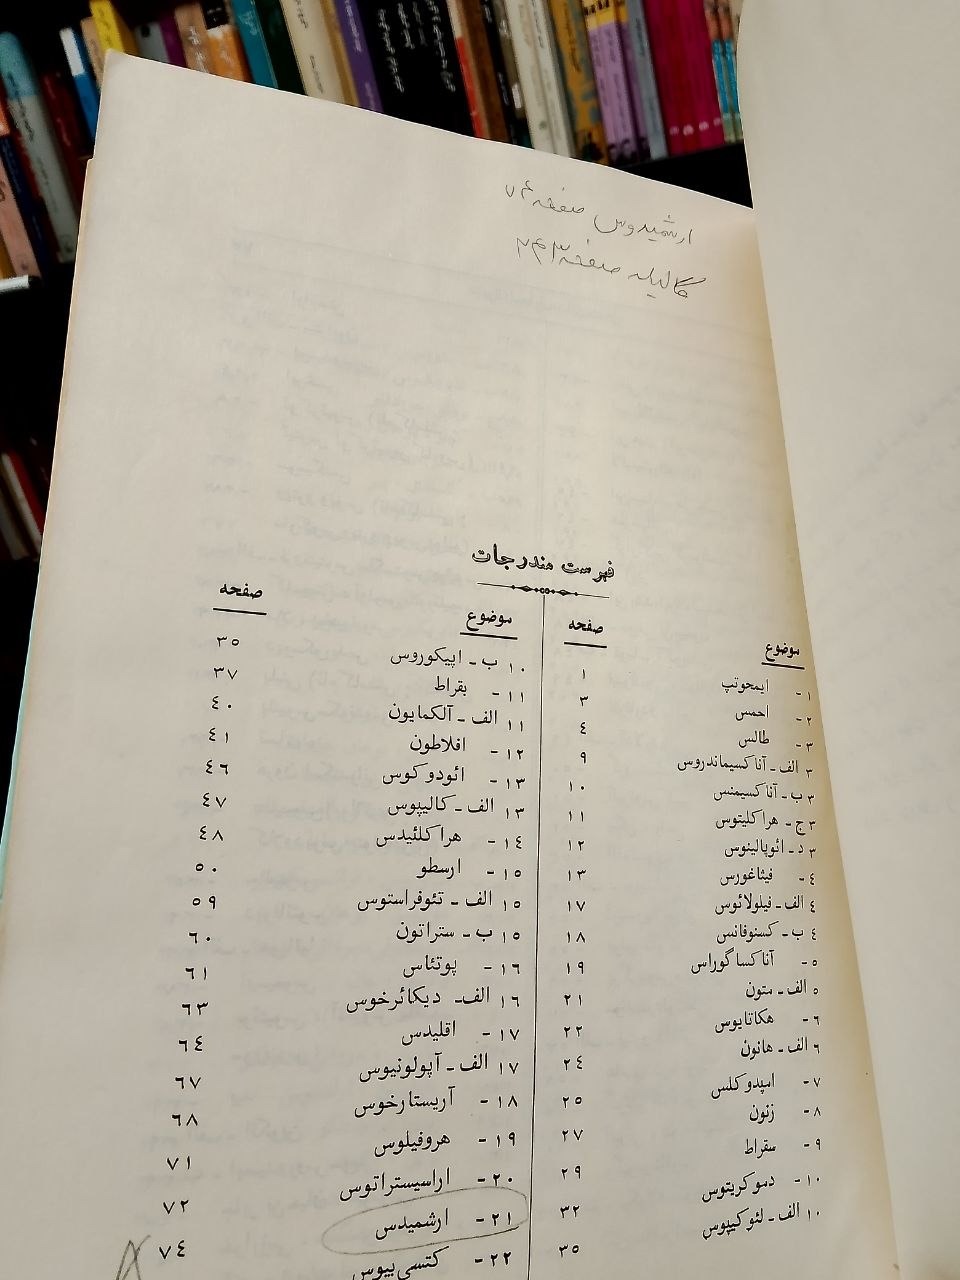 ارشمیدوس صفحه ۷۴
گالیله صفحه ۲۴۳
فهرست مندرجات
موضوع صفحه
۱- ایمحوتپ ۱
۲- احمس ۳
۳- طالس ٤
۳ الف- آناکسیماندروس ۹
۳ ب- آناکسیمنس ۱۰
۳ ج- هراکلیتوس ۱۱
۳ د- ائوپالینوس ۱۲
٤- فیثاغورس ۱۳
٤ الف- فیلولائوس ۱۷
٤ ب- کسنوفانس ۱۸
٥- آناکساگوراس ۱۹
٥ الف- متون ۲۱
٦- هکاتایوس ۲۲
٦ الف- هانون ۲٤
۷- امپدوکلس ۲٥
۸- زنون ۲۷
۹- سقراط ۲۹
۱۰- دموکریتوس ۳۲
۱۰ الف- لئوکیپوس ۳٥
موضوع صفحه
۱۰ ب- اپیکوروس ۳٥
۱۱- بقراط ۳۷
۱۱ الف- آلکمایون ٤۰
۱۲- افلاطون ٤۱
۱۳- ائودوکوس ٤٦
۱۳ الف- کالیپوس ٤۷
۱٤- هراکلئیدس ٤۸
۱٥- ارسطو ٥۰
۱٥ الف- تئوفراستوس ٥۹
۱٥ ب- ستراتون ٦۰
۱٦- پوتئاس ٦۱
۱٦ الف- دیکائرخوس ٦۳
۱۷- اقلیدس ٦٤
۱۷ الف- آپولونیوس ٦۷
۱۸- آریستارخوس ٦۸
۱۹- هروفیلوس ۷۱
۲۰- اراسیستراتوس ۷۲
۲۱- ارشمیدس ۷٤
۲۲- کتسی بیوس